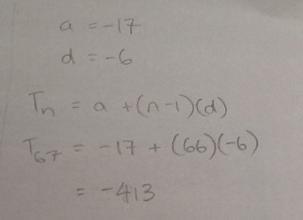 a = -17
d = -6
Tn = a + (n-1)(d)
T67 = -17 + (66)(-6)
= -413